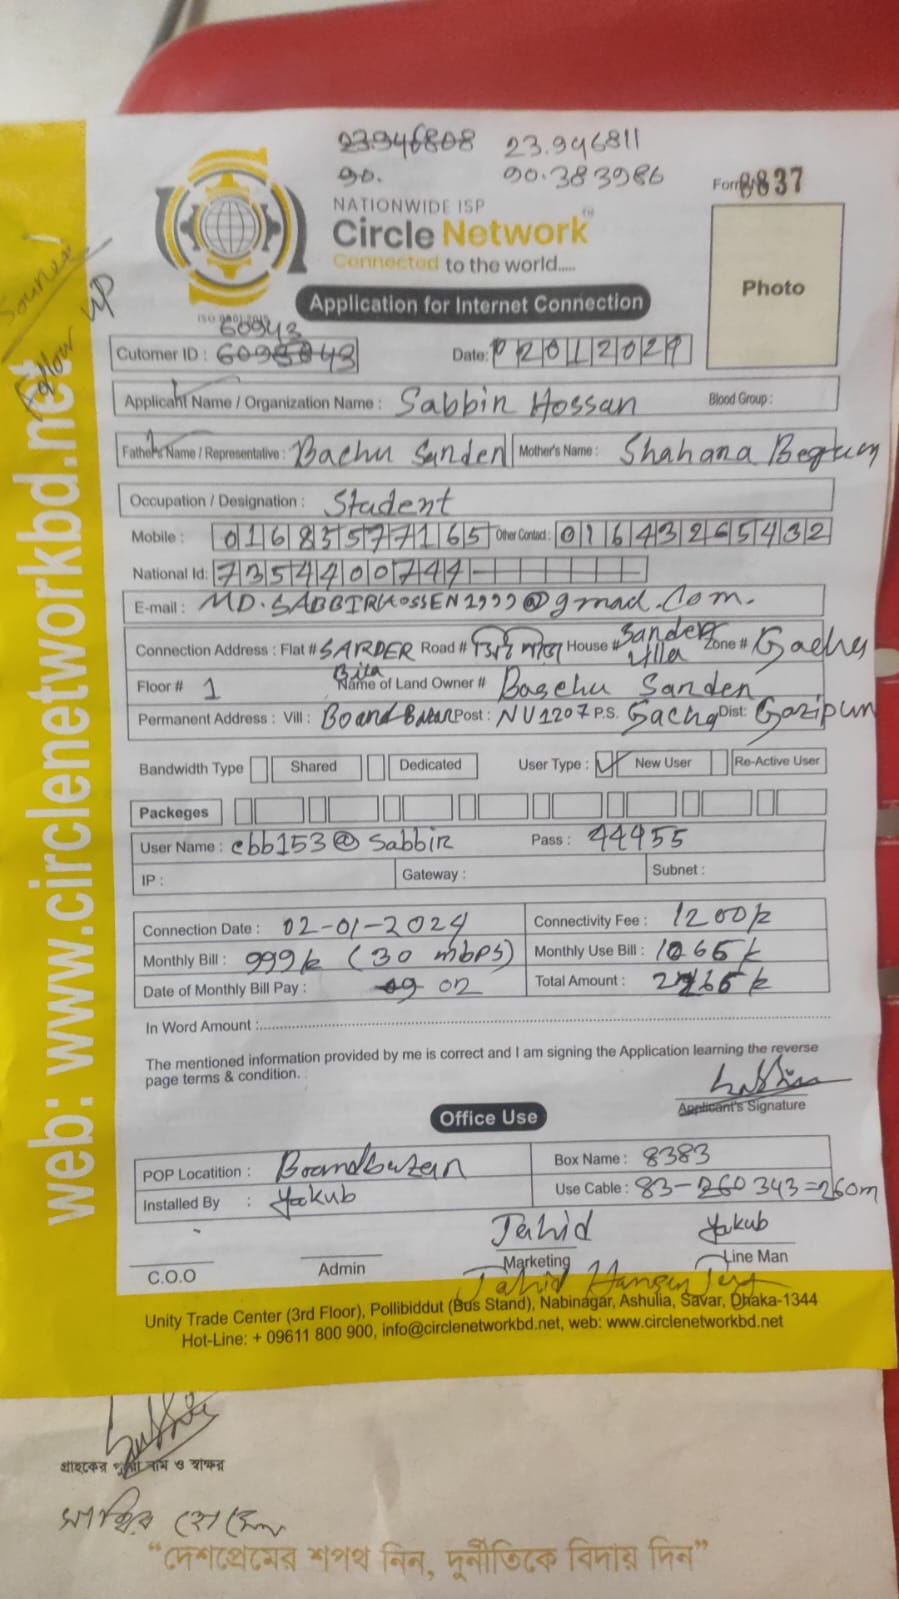 23.946808 23.946811
90. 90.383986
Form 8837
NATIONWIDE ISP
Circle Network
Connected to the world.....
Photo
Application for Internet Connection
60943
Cutomer ID :
Date:
Applicant Name / Organization Name : Sabbir Hossan Blood Group :
Father's Name / Representative : Bachu Sarder Mother's Name : Shahana Begum
Occupation / Designation : Student
Mobile : 01683577165 Other Contact : 01643265432
National Id: 7354400744
E-mail : MD.SABBIRHOSSEN1999@gmail.com.
Connection Address : Flat # SARDER Road # House # Sarder Villa Zone # Gacha
Bita
Floor # 1 Name of Land Owner # Bacchu Sarder
Permanent Address : Vill : Board Bazar Post : NU1207 P.S. Gacha Dist: Gazipur
Bandwidth Type Shared Dedicated User Type : ✓ New User Re-Active User
Packeges
User Name : cbb153@sabbir Pass : 44955
IP : Gateway : Subnet :
Connection Date : 02-01-2024 Connectivity Fee : 1200/=
Monthly Bill : 999/= (30 mbps) Monthly Use Bill : 1065/=
Date of Monthly Bill Pay : 02 Total Amount :
In Word Amount :
The mentioned information provided by me is correct and I am signing the Application learning the reverse
page terms & condition.
Applicant's Signature
Office Use
POP Locatition : Boardbazar Box Name : 8383
Installed By : Yakub Use Cable : 83-260 343=260m
Jahid Yakub
C.O.O Admin Marketing Line Man
Unity Trade Center (3rd Floor), Pollibiddut (Bus Stand), Nabinagar, Ashulia, Savar, Dhaka-1344
Hot-Line: + 09611 800 900, info@circlenetworkbd.net, web: www.circlenetworkbd.net
web: www.circlenetworkbd.net
Follow UP
গ্রাহকের নাম ও স্বাক্ষর
সাব্বির হোসেন
“দেশপ্রেমের শপথ নিন, দুর্নীতিকে বিদায় দিন”